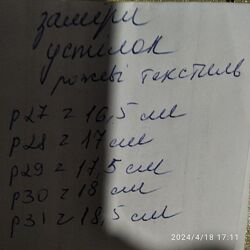 заміри
устілок
рожеві текстиль
р27 = 16,5 см
р28 = 17 см
р29 = 17,5 см
р30 = 18 см
р31 = 18,5 см
2024/4/18 17:11